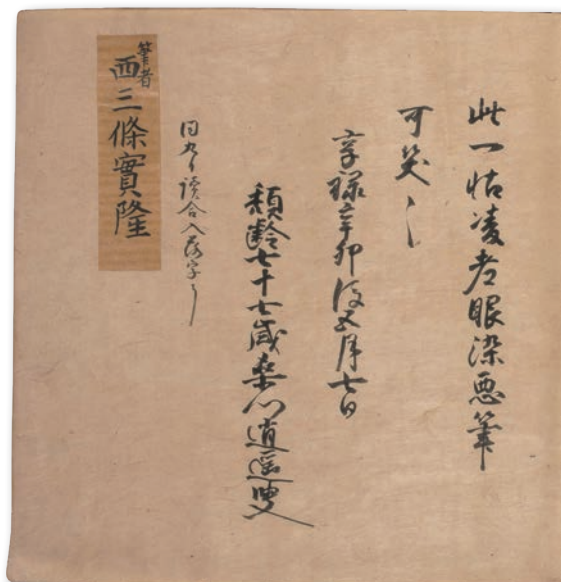 此一帖凌老眼染悪筆
可笑〻
享禄辛卯後五月七日
頽齢七十七歳桑門逍遥叟
同九日読合入落字了
筆者
西三條實隆